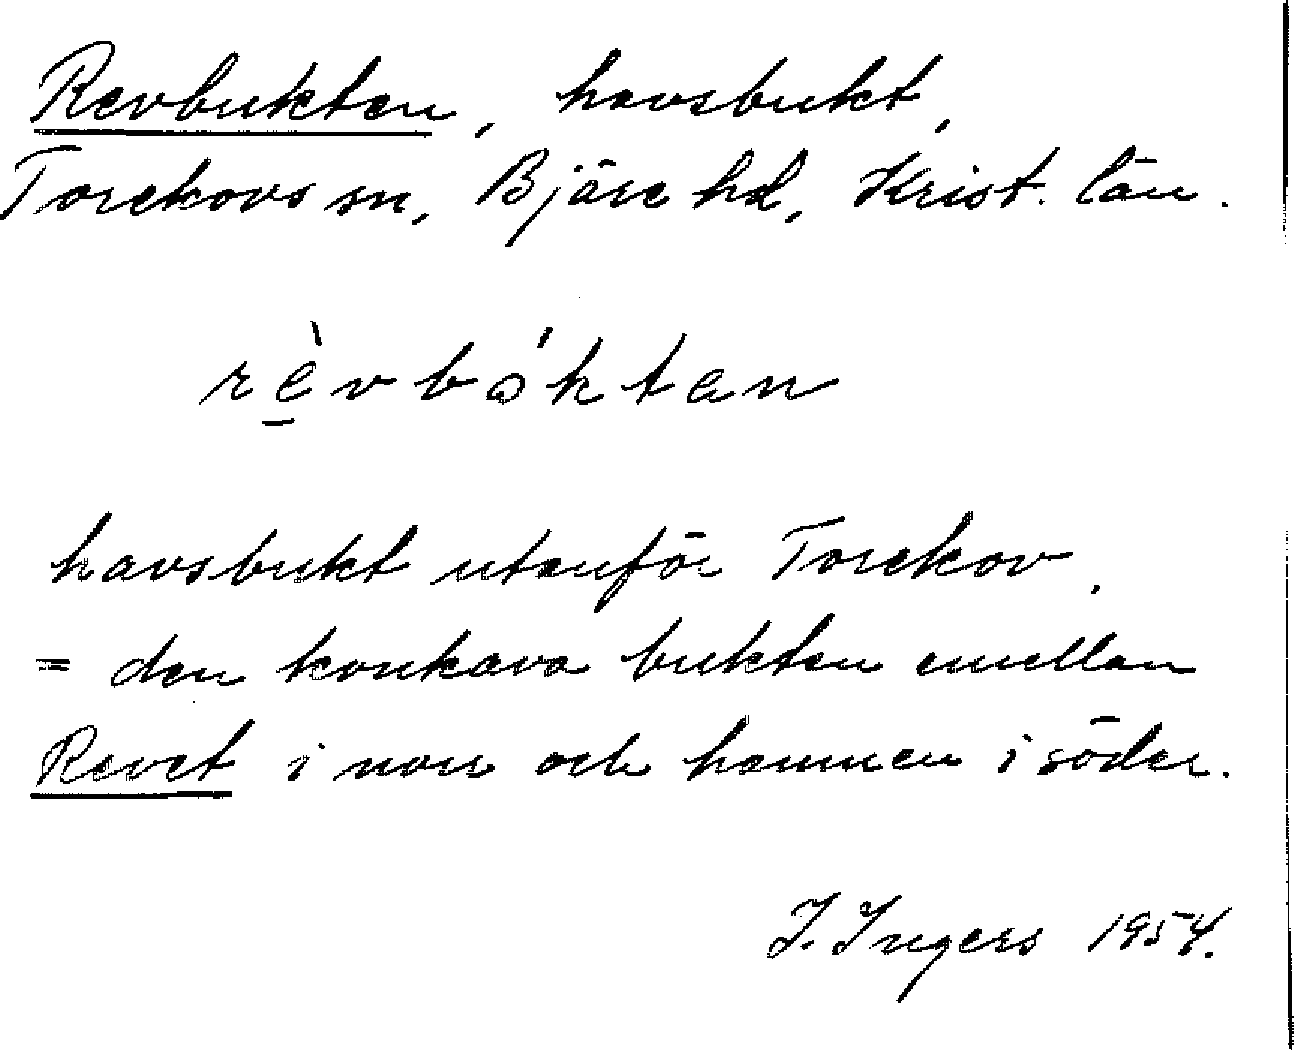 Revbukten, havsbukt,
Torekovs sn, Bjäre hd, Krist. län.
rè̱vbo̍ktan
havsbukt utanför Torekov.
= den konkava bukten emellan
Revet i norr och hamnen i söder.
I. Ingers 1954.